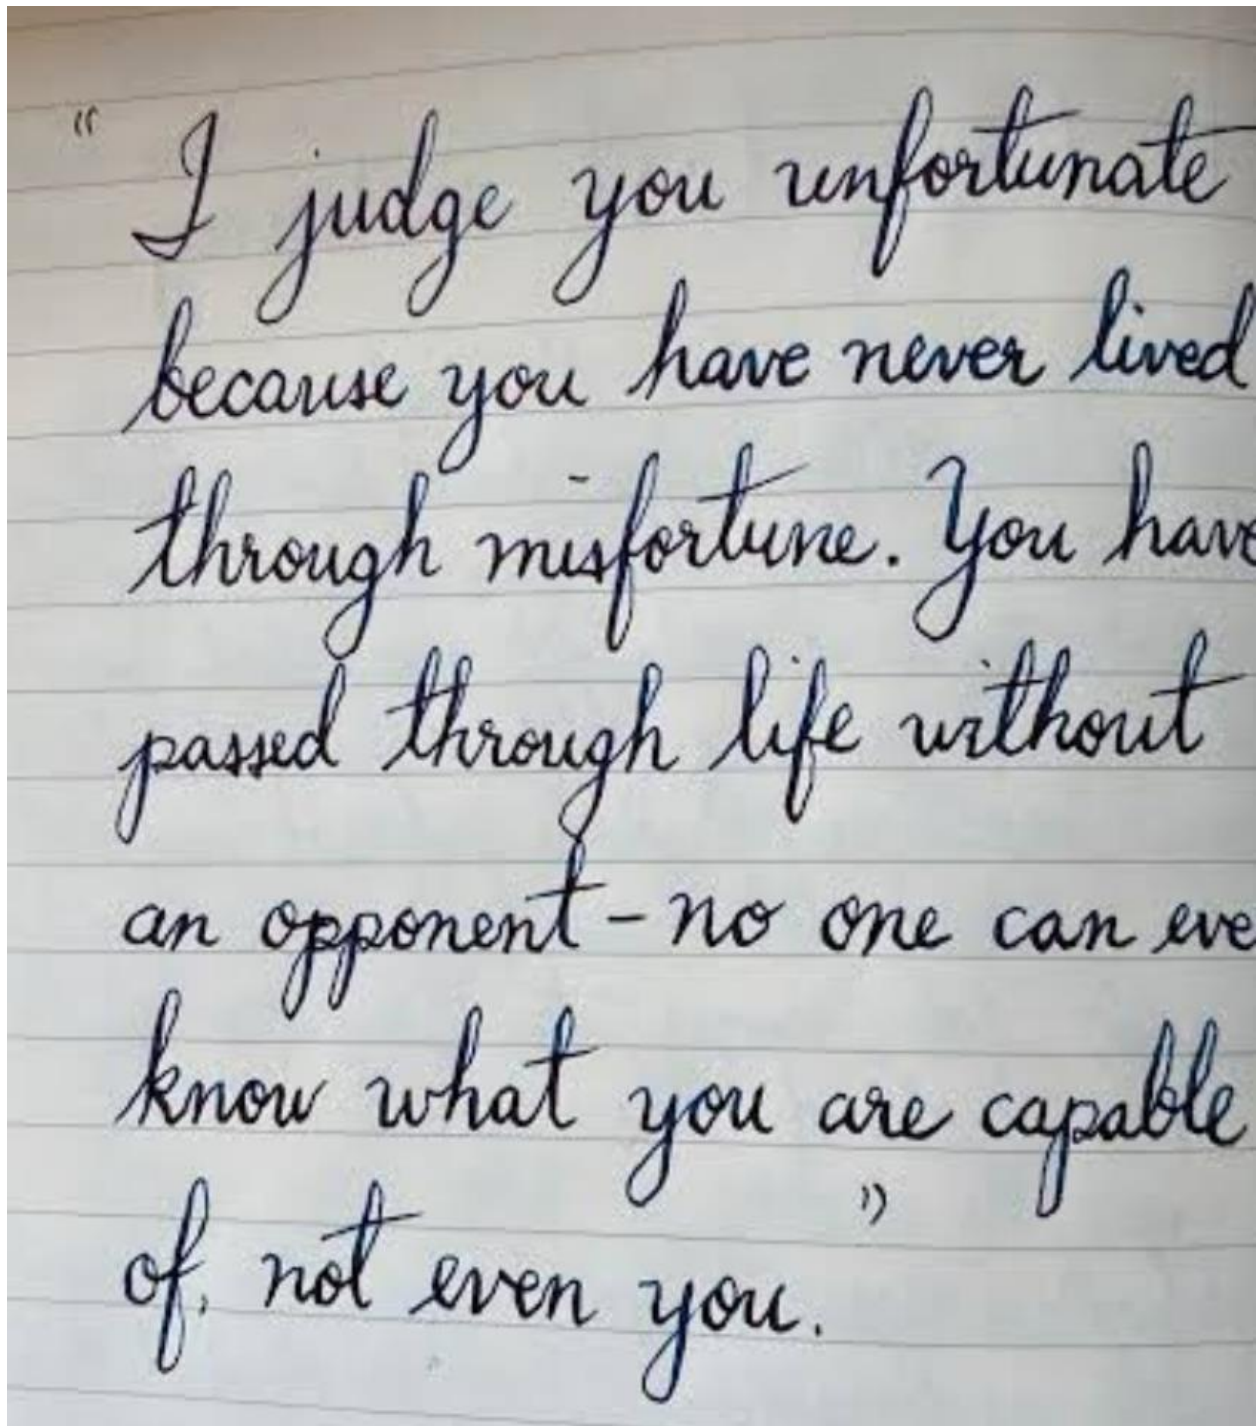 "I judge you unfortunate
because you have never lived
through misfortune. You have
passed through life without
an opponent - no one can eve
know what you are capable
of, not even you."